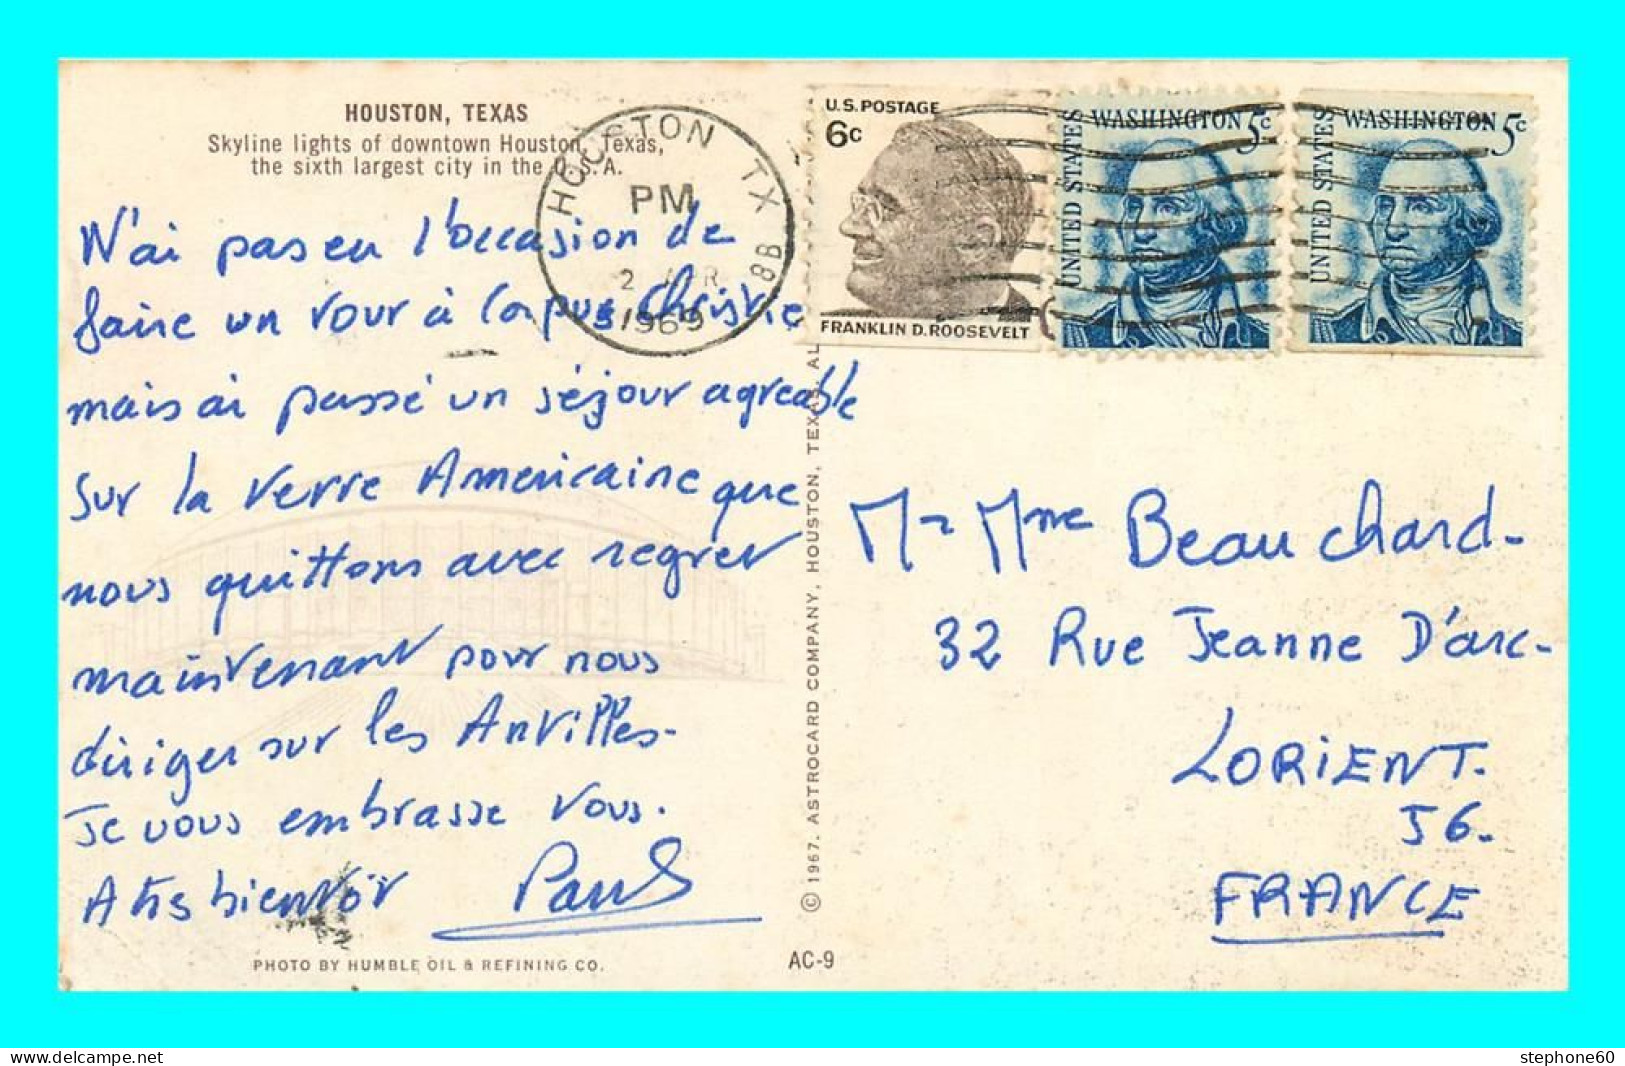 HOUSTON, TEXAS
Skyline lights of downtown Houston, Texas,
the sixth largest city in the U.S.A.
HOUSTON TX
PM
2 APR
1969
U.S. POSTAGE
6c
FRANKLIN D. ROOSEVELT
UNITED STATES
WASHINGTON 5c
UNITED STATES
WASHINGTON 5c
N'ai pas eu l'occasion de
faire un tour à Corpus Christie
mais ai passé un séjour agreable
sur la terre Americaine que
nous quittons avec regret
maintenant pour nous
diriger sur les Antilles.
Je vous embrasse tous.
A très bientôt
Paul
Mr Mme Beauchard.
32 Rue Jeanne D'arc.
LORIENT.
56.
FRANCE
© 1967. ASTROCARD COMPANY, HOUSTON, TEXAS. AL
PHOTO BY HUMBLE OIL & REFINING CO.
AC-9
stephone60